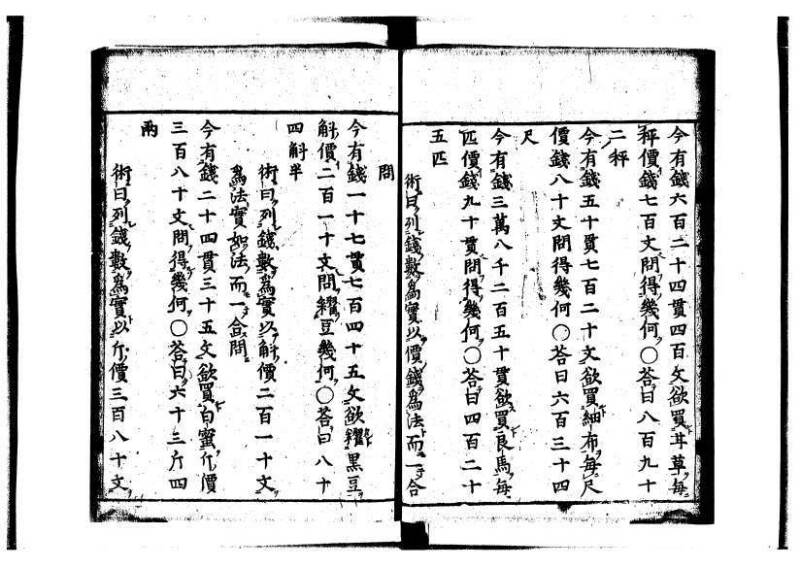 今有錢六百二十四貫四百文欲買茸草每
秤價錢七百文問得幾何〇荅曰八百九十
二秤
今有錢五十貫七百二十文欲買細布每尺
價錢八十文問得幾何〇荅曰六百三十四
尺
今有錢三萬八千二百五十貫欲買良馬每
匹價錢九十貫問得幾何〇荅曰四百二十
五匹
術曰列錢數爲實以價錢爲法而一合
問
今有錢一十七貫七百四十五文欲糴黑豆
斛價二百一十文問糴豆幾何〇荅曰八十
四斛半
術曰列錢數爲實以斛價二百一十文
爲法實如法而一合問
今有錢二十四貫三十五文欲買白蜜斤價
三百八十文問得幾何〇荅曰六十三斤四
兩
術曰列錢數爲實以斤價三百八十文